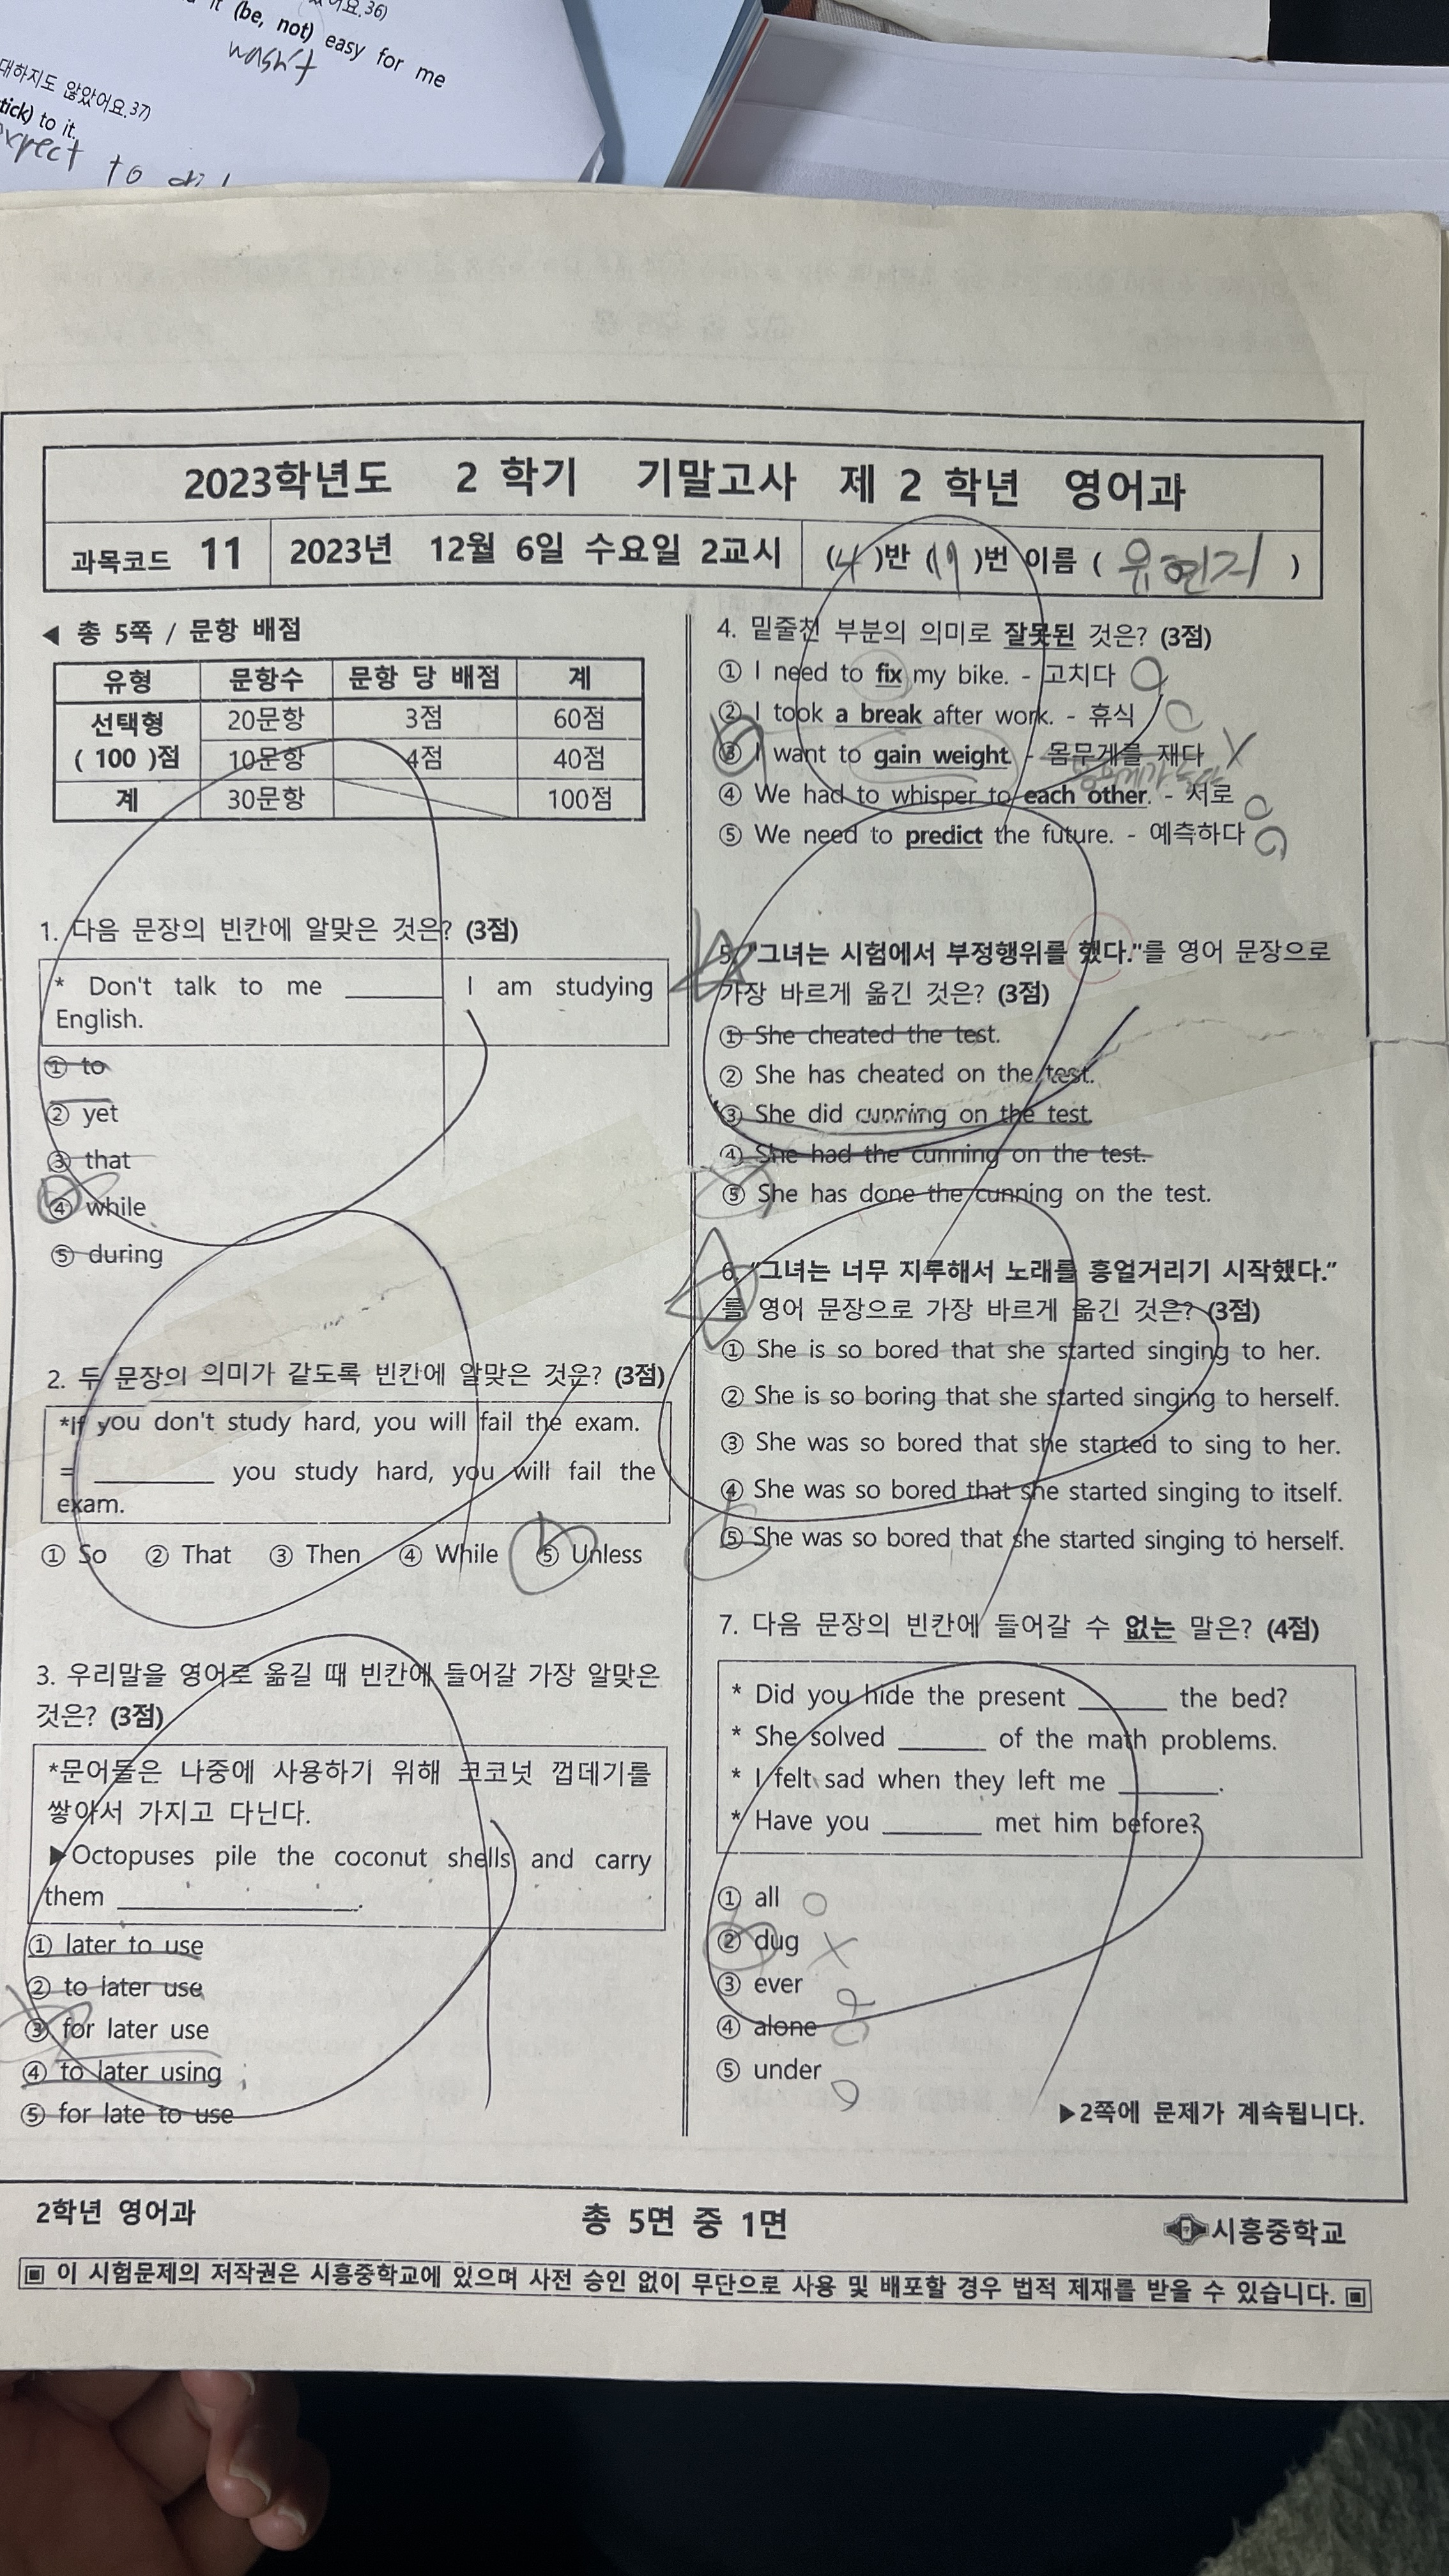 (be, not) easy for me
wasn't
대하지도 않았어요.37)
tick) to it.
to
2023학년도 2 학기 기말고사 제 2 학년 영어과
과목코드 11
2023년 12월 6일 수요일 2교시
(4)반 (19)번 이름 ( 유현지 )
◀ 총 5쪽 / 문항 배점
유형 문항수 문항 당 배점 계
선택형 ( 100 )점 20문항 3점 60점
10문항 4점 40점
계 30문항 100점
1. 다음 문장의 빈칸에 알맞은 것은? (3점)
* Don't talk to me ______ I am studying
English.
① to
② yet
③ that
④ while
⑤ during
2. 두 문장의 의미가 같도록 빈칸에 알맞은 것은? (3점)
*If you don't study hard, you will fail the exam.
= ________ you study hard, you will fail the
exam.
① So ② That ③ Then ④ While ⑤ Unless
3. 우리말을 영어로 옮길 때 빈칸에 들어갈 가장 알맞은
것은? (3점)
*문어들은 나중에 사용하기 위해 코코넛 껍데기를
쌓아서 가지고 다닌다.
▶Octopuses pile the coconut shells and carry
them ________________.
① later to use
② to later use
③ for later use
④ to later using
⑤ for late to use
4. 밑줄친 부분의 의미로 잘못된 것은? (3점)
① I need to fix my bike. - 고치다
② I took a break after work. - 휴식
③ I want to gain weight. - 몸무게를 재다
④ We had to whisper to each other. - 서로
⑤ We need to predict the future. - 예측하다
5. "그녀는 시험에서 부정행위를 했다."를 영어 문장으로
가장 바르게 옮긴 것은? (3점)
① She cheated the test.
② She has cheated on the test.
③ She did cunning on the test.
④ She had the cunning on the test.
⑤ She has done the cunning on the test.
6. "그녀는 너무 지루해서 노래를 흥얼거리기 시작했다."
를 영어 문장으로 가장 바르게 옮긴 것은? (3점)
① She is so bored that she started singing to her.
② She is so boring that she started singing to herself.
③ She was so bored that she started to sing to her.
④ She was so bored that she started singing to itself.
⑤ She was so bored that she started singing to herself.
7. 다음 문장의 빈칸에 들어갈 수 없는 말은? (4점)
* Did you hide the present ______ the bed?
* She solved ______ of the math problems.
* I felt sad when they left me _______.
* Have you _______ met him before?
① all
② dug
③ ever
④ alone
⑤ under
▶2쪽에 문제가 계속됩니다.
2학년 영어과
총 5면 중 1면
시흥중학교
▣ 이 시험문제의 저작권은 시흥중학교에 있으며 사전 승인 없이 무단으로 사용 및 배포할 경우 법적 제재를 받을 수 있습니다. ▣